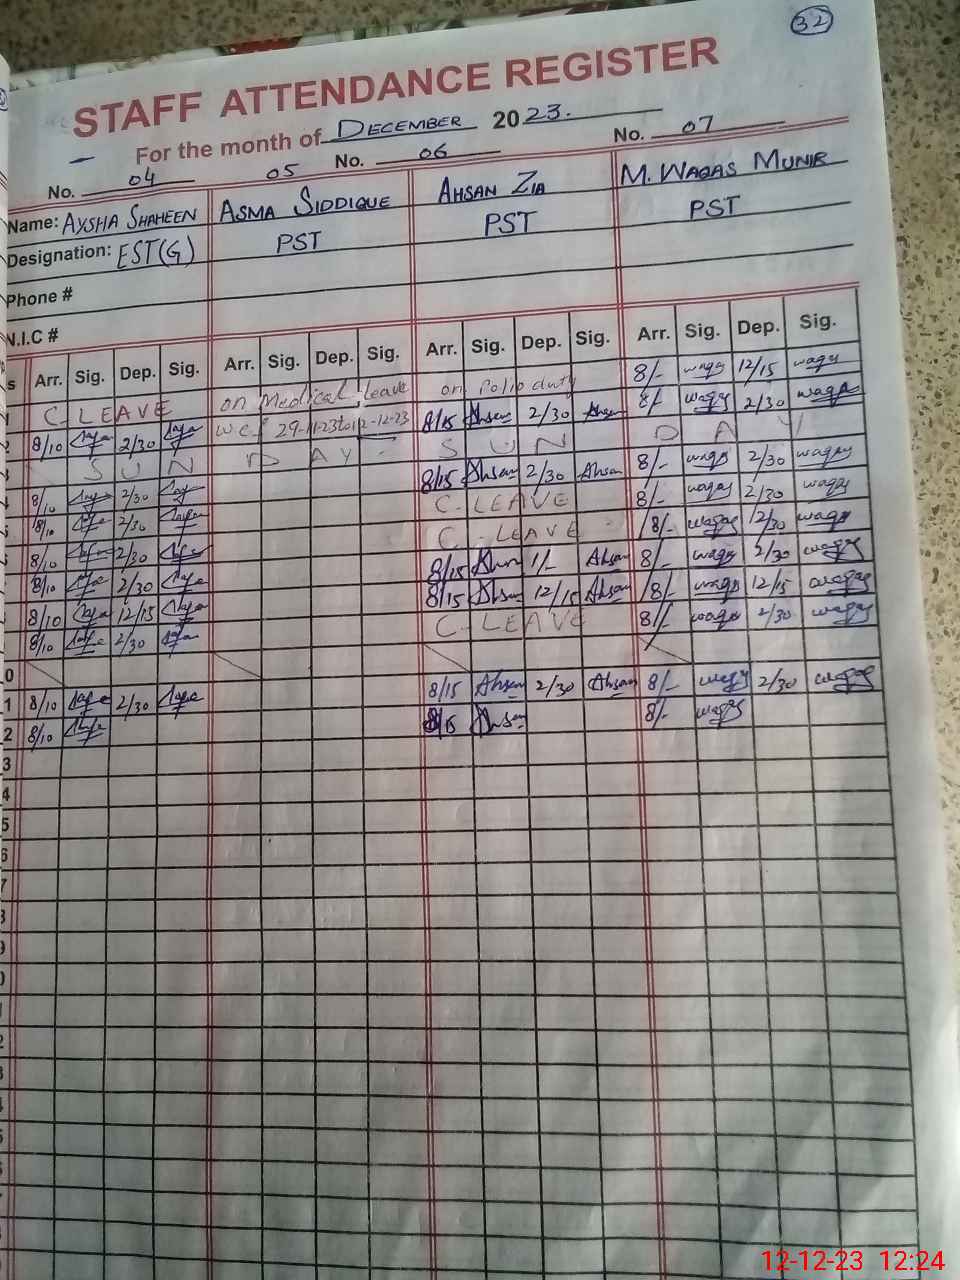 32
STAFF ATTENDANCE REGISTER
For the month of DECEMBER 2023.
No. 04 05 No. 06 No. 07
Name: AYSHA SHAHEEN ASMA SIDDIQUE AHSAN ZIA M. WAQAS MUNIR
Designation: EST(G) PST PST PST
Phone #
N.I.C #
s Arr. Sig. Dep. Sig. Arr. Sig. Dep. Sig. Arr. Sig. Dep. Sig. Arr. Sig. Dep. Sig.
C. LEAVE on Medical leave on Polio duty 8/- waqas 12/15 waqas
2 8/10 2/30 w.e.f 29-11-23 to 12-12-23 8/15 Ahsan 2/30 Ahsan 8/- waqas 2/30 waqas
SUN DAY SUN DAY
4 8/10 2/30 8/15 Ahsan 2/30 Ahsan 8/- waqas 2/30 waqas
5 8/10 2/30 C. LEAVE 8/- waqas 2/30 waqas
8/10 2/30 C. LEAVE 8/- waqas 12/30 waqas
8/10 2/30 8/15 Ahsan 1/- Ahsan 8/- waqas 2/30 waqas
8/10 12/15 8/15 Ahsan 12/15 Ahsan 8/- waqas 12/15 waqas
8/10 2/30 C. LEAVE 8/- waqas 2/30 waqas
0
1 8/10 2/30 8/15 Ahsan 2/30 Ahsan 8/- waqas 2/30 waqas
2 8/10 8/15 Ahsan 8/- waqas
3
4
5
6
7
8
9
0
1
2
3
4
5
12-12-23 12:24